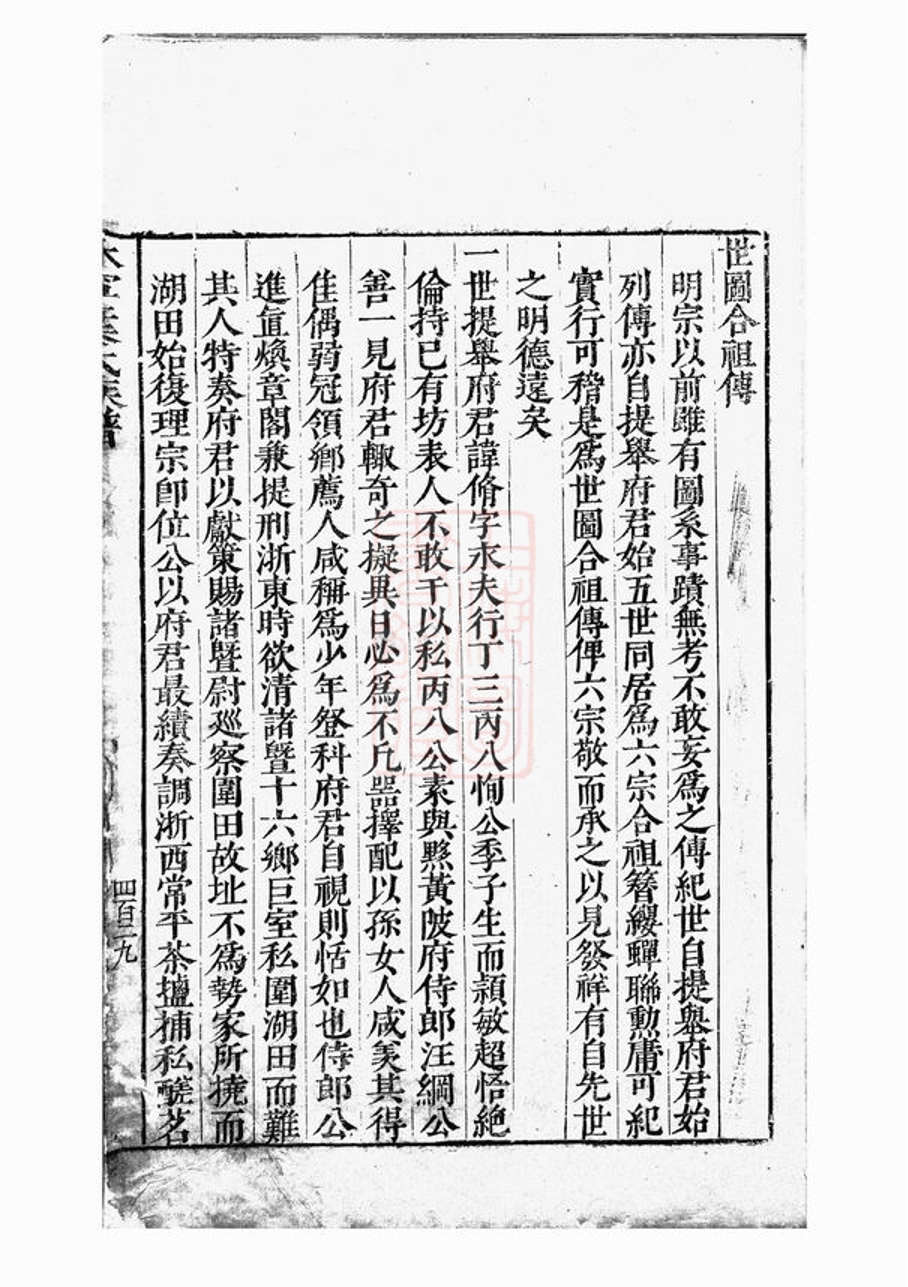 世圖合祖傳
明宗以前雖有圖系事蹟無考不敢妄爲之傳紀世自提舉府君始
列傳亦自提舉府君始五世同居爲六宗合祖簪纓蟬聯勲庸可紀
實行可稽是爲世圖合祖傳俾六宗敬而承之以見發祥有自先世
之明德遠矣
一世提舉府君諱脩字永夫行丁三丙八恂公季子生而頴敏超悟絶
倫持已有坊表人不敢干以私丙八公素與黟黃陂府侍郎汪綱公
善一見府君輙奇之擬異日必爲不凡噐擇配以孫女人咸羙其得
佳偶弱冠領鄉薦人咸稱爲少年登科府君自視則恬如也侍郎公
進直煥章閣兼提刑浙東時欲清諸暨十六鄉巨室私圍湖田而難
其人特奏府君以獻策賜諸暨尉廵察圍田故址不爲勢家所撓而
湖田始復理宗卽位公以府君最績奏調浙西常平茶塩捕私醝茗
氏族譜
四百二九